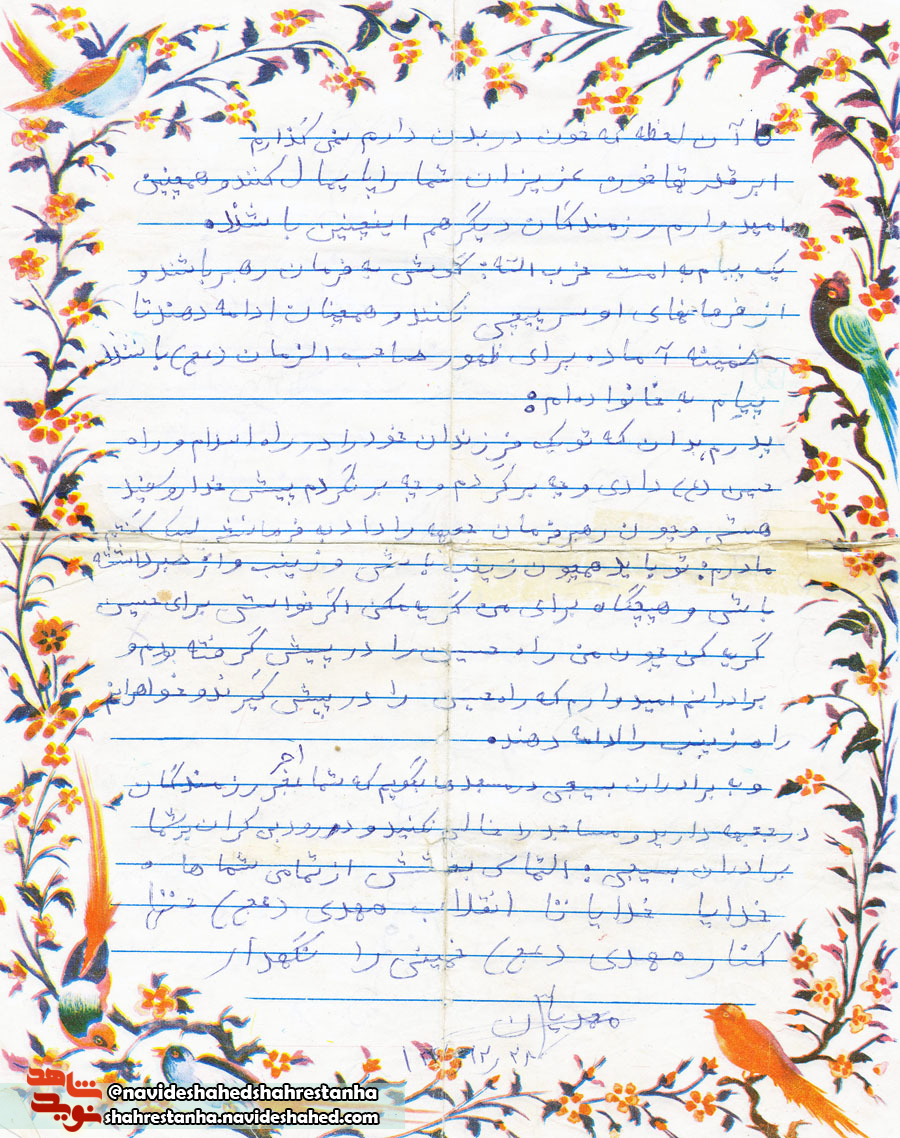 تا آن لحظه که خون در بدن دارم نمی گذارم
ابرقدرتها خون عزیزان شما را پایمال کنند و همچنین
امیدوارم رزمندگان دیگر هم اینچنین باشند.
یک پیام به امت حزب الله: گوش به فرمان رهبر باشند و
از فرمانهای او سرپیچی نکنند و همچنان ادامه دهند تا
زمینه آماده برای ظهور صاحب الزمان (عج) باشند
پیام به خانواده ام:
پدرم، بدان که تو یک فرزندان خود را در راه اسلام و راه
حسین (ع) دادی و چه برگردم و چه برنگردم پیش خدا روسفید
هستی و چون رهبر فرمان جبهه را داد به فرمانش لبیک گفتیم
مادرم: تو باید همچون زینب باشی و زینب وار صبر داشته
باشی و هیچگاه برای من گریه مکن اگر خواستی برای حسین
گریه کن چون من راه حسین را در پیش گرفته بودم و
برادرانم امیدوارم که راه حسین را در پیش گیرند و خواهرانم
راه زینب را ادامه دهند.
و به برادران بسیجی در مسجد بگویم که شما اجر رزمندگان
در جبهه دارید و مساجد را خالی نکنید و درود بی کران بر شما
برادران بسیجی: التماس بخشش از تمامی شماها
خدایا خدایا تا انقلاب مهدی (عج) حتی
کنار مهدی (عج) خمینی را نگهدار
۲۸
©navideshahedshahrestanha
shahrestanha.navideshahed.com
نوید شاهد